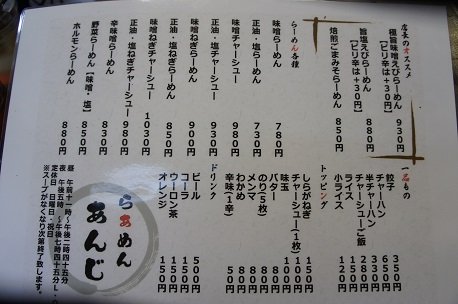 店長のオススメ
極旨味噌えびらーめん 930円
【ピリ辛は+30円】
旨塩えびらーめん 880円
【ピリ辛は+30円】
焙煎ごまみそらーめん 850円
らーめん各種
味噌らーめん 780円
正油・塩らーめん 730円
味噌チャーシュー 980円
正油・塩チャーシュー 930円
味噌ねぎらーめん 900円
正油・塩ねぎらーめん 850円
味噌ねぎチャーシュー 1030円
正油・塩ねぎチャーシュー 980円
辛味噌らーめん 850円
野菜らーめん【味噌・塩】 880円
ホルモンらーめん 880円
一品もの
餃子 330円
チャーハン 650円
半チャーハン 350円
チャーシューご飯
ライス 150円
小ライス 120円
トッピング
しらがねぎ
チャーシュー(1枚) 100円
味玉 100円
バター
のり(5枚)
メンマ
わかめ
辛味(1辛) 50円
ドリンク
ビール 500円
コーラ
ウーロン茶 150円
オレンジ 150円
らぁめん
あんじ
昼 午前十一時〜午後二時四十五分
夜 午後五時〜午後七時四十五分L.O
定休日 日曜日・祝日
※スープがなくなり次第終了致します。